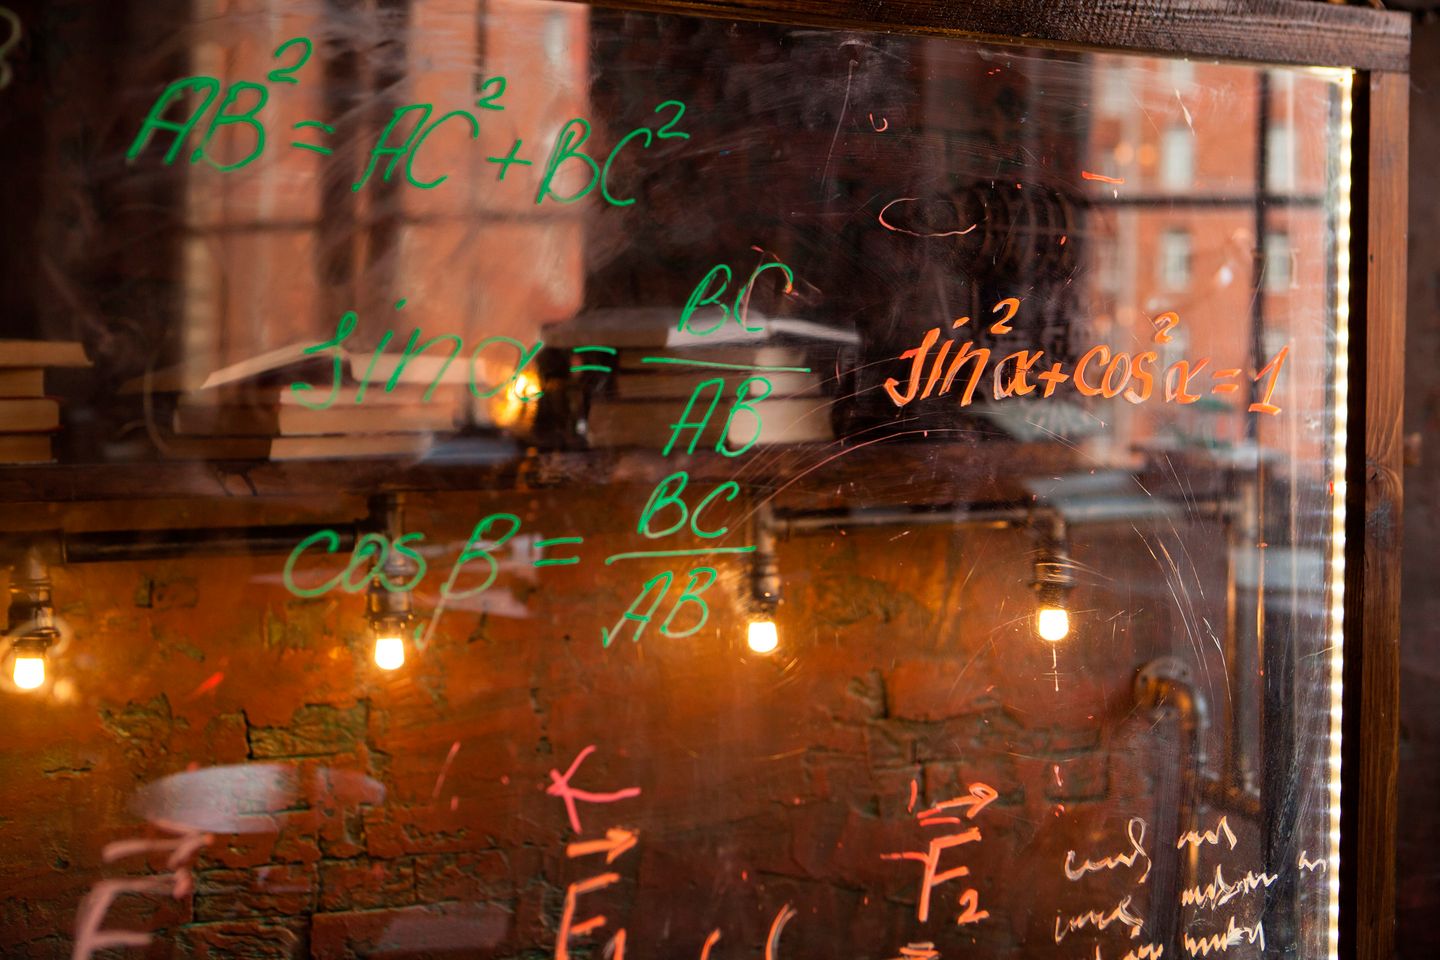 AB² = AC² + BC²
sin α = BC/AB
sin²α + cos²α = 1
cos β = BC/AB
F⃗ F⃗₁ F⃗₂